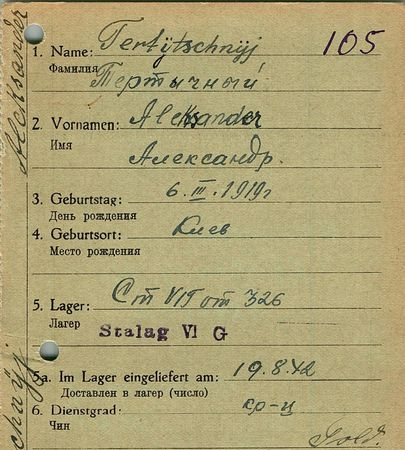 Aleksander
chnyj
1. Name: Tertytschnyj 105
Фамилия Тертычный
2. Vornamen: Aleksander
Имя Александр.
3. Geburtstag: 6.III.1919г
День рождения
4. Geburtsort: Киев
Место рождения
5. Lager: Ст VI от 326
Лагер Stalag VI G
5a. Im Lager eingeliefert am: 19.8.42
Доставлен в лагер (число)
6. Dienstgrad: кр-ц
Чин
Sold.